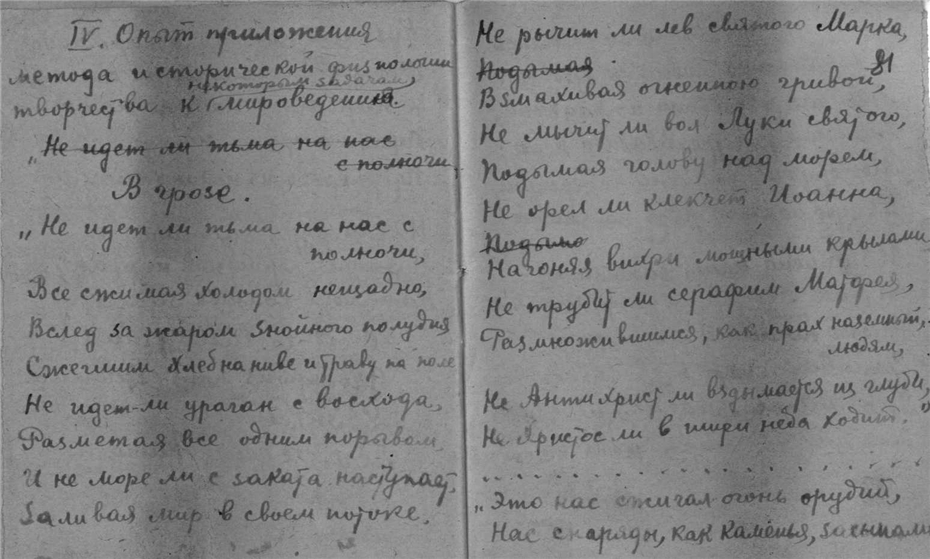 IV. Опыт приложения
метода исторической физиологии
некоторым задачам,
творчества к мироведения.
„Не идет ли тьма на нас
с полночи
В грозе.
„Не идет ли тьма на нас с
полночи,
Все сжимая холодом нещадно,
Вслед за жаром знойного полудня
Сжегшим хлеб на ниве и траву на поле
Не идет-ли ураган с восхода,
Разметая все одним порывом
И не море ли с заката наступает,
Заливая мир в своем потоке.
Не рычит ли лев святого Марка,
Подымая
81
Взмахивая огненною гривой,
Не мычит ли вол Луки святого,
Подымая голову над морем,
Не орел ли клекчет Иоанна,
Подымо
Нагоняя вихри мощными крылами
Не трубит ли серафим Матфея,
Размножившимся, как прах наземный,
людям,
Не Антихрист ли вздымается из глуби,
Не Христос ли в шири неба ходит."
. . . . . . . . . . . . . . . . . .
„Это нас сжигал огонь орудий,
Нас снаряды, как каменья, засыпали